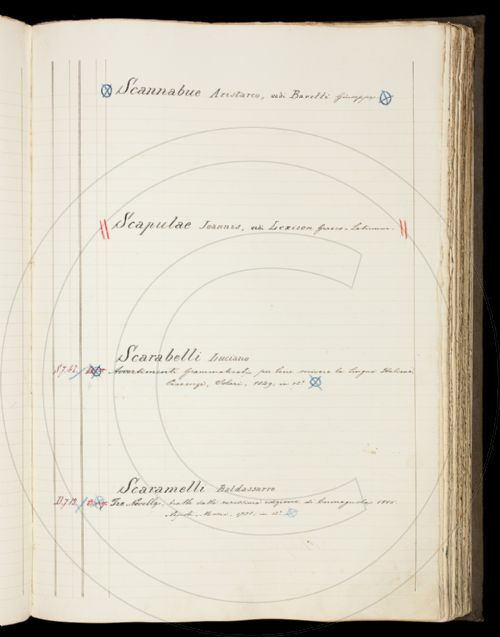 Scannabue Aristarco, vedi Baretti Giuseppe
Scapulae Joannes, vedi Lexicon Graeco-Latinum.
Scarabelli Luciano
Avvertimenti Grammaticali per bene scrivere la lingua Italiana
Piacenza, Solari, 1829, in 12°
Scaramelli Baldassarre
Tre Novelle, tratte dalla rarissima edizione di Carmagnola
Napoli in 12°